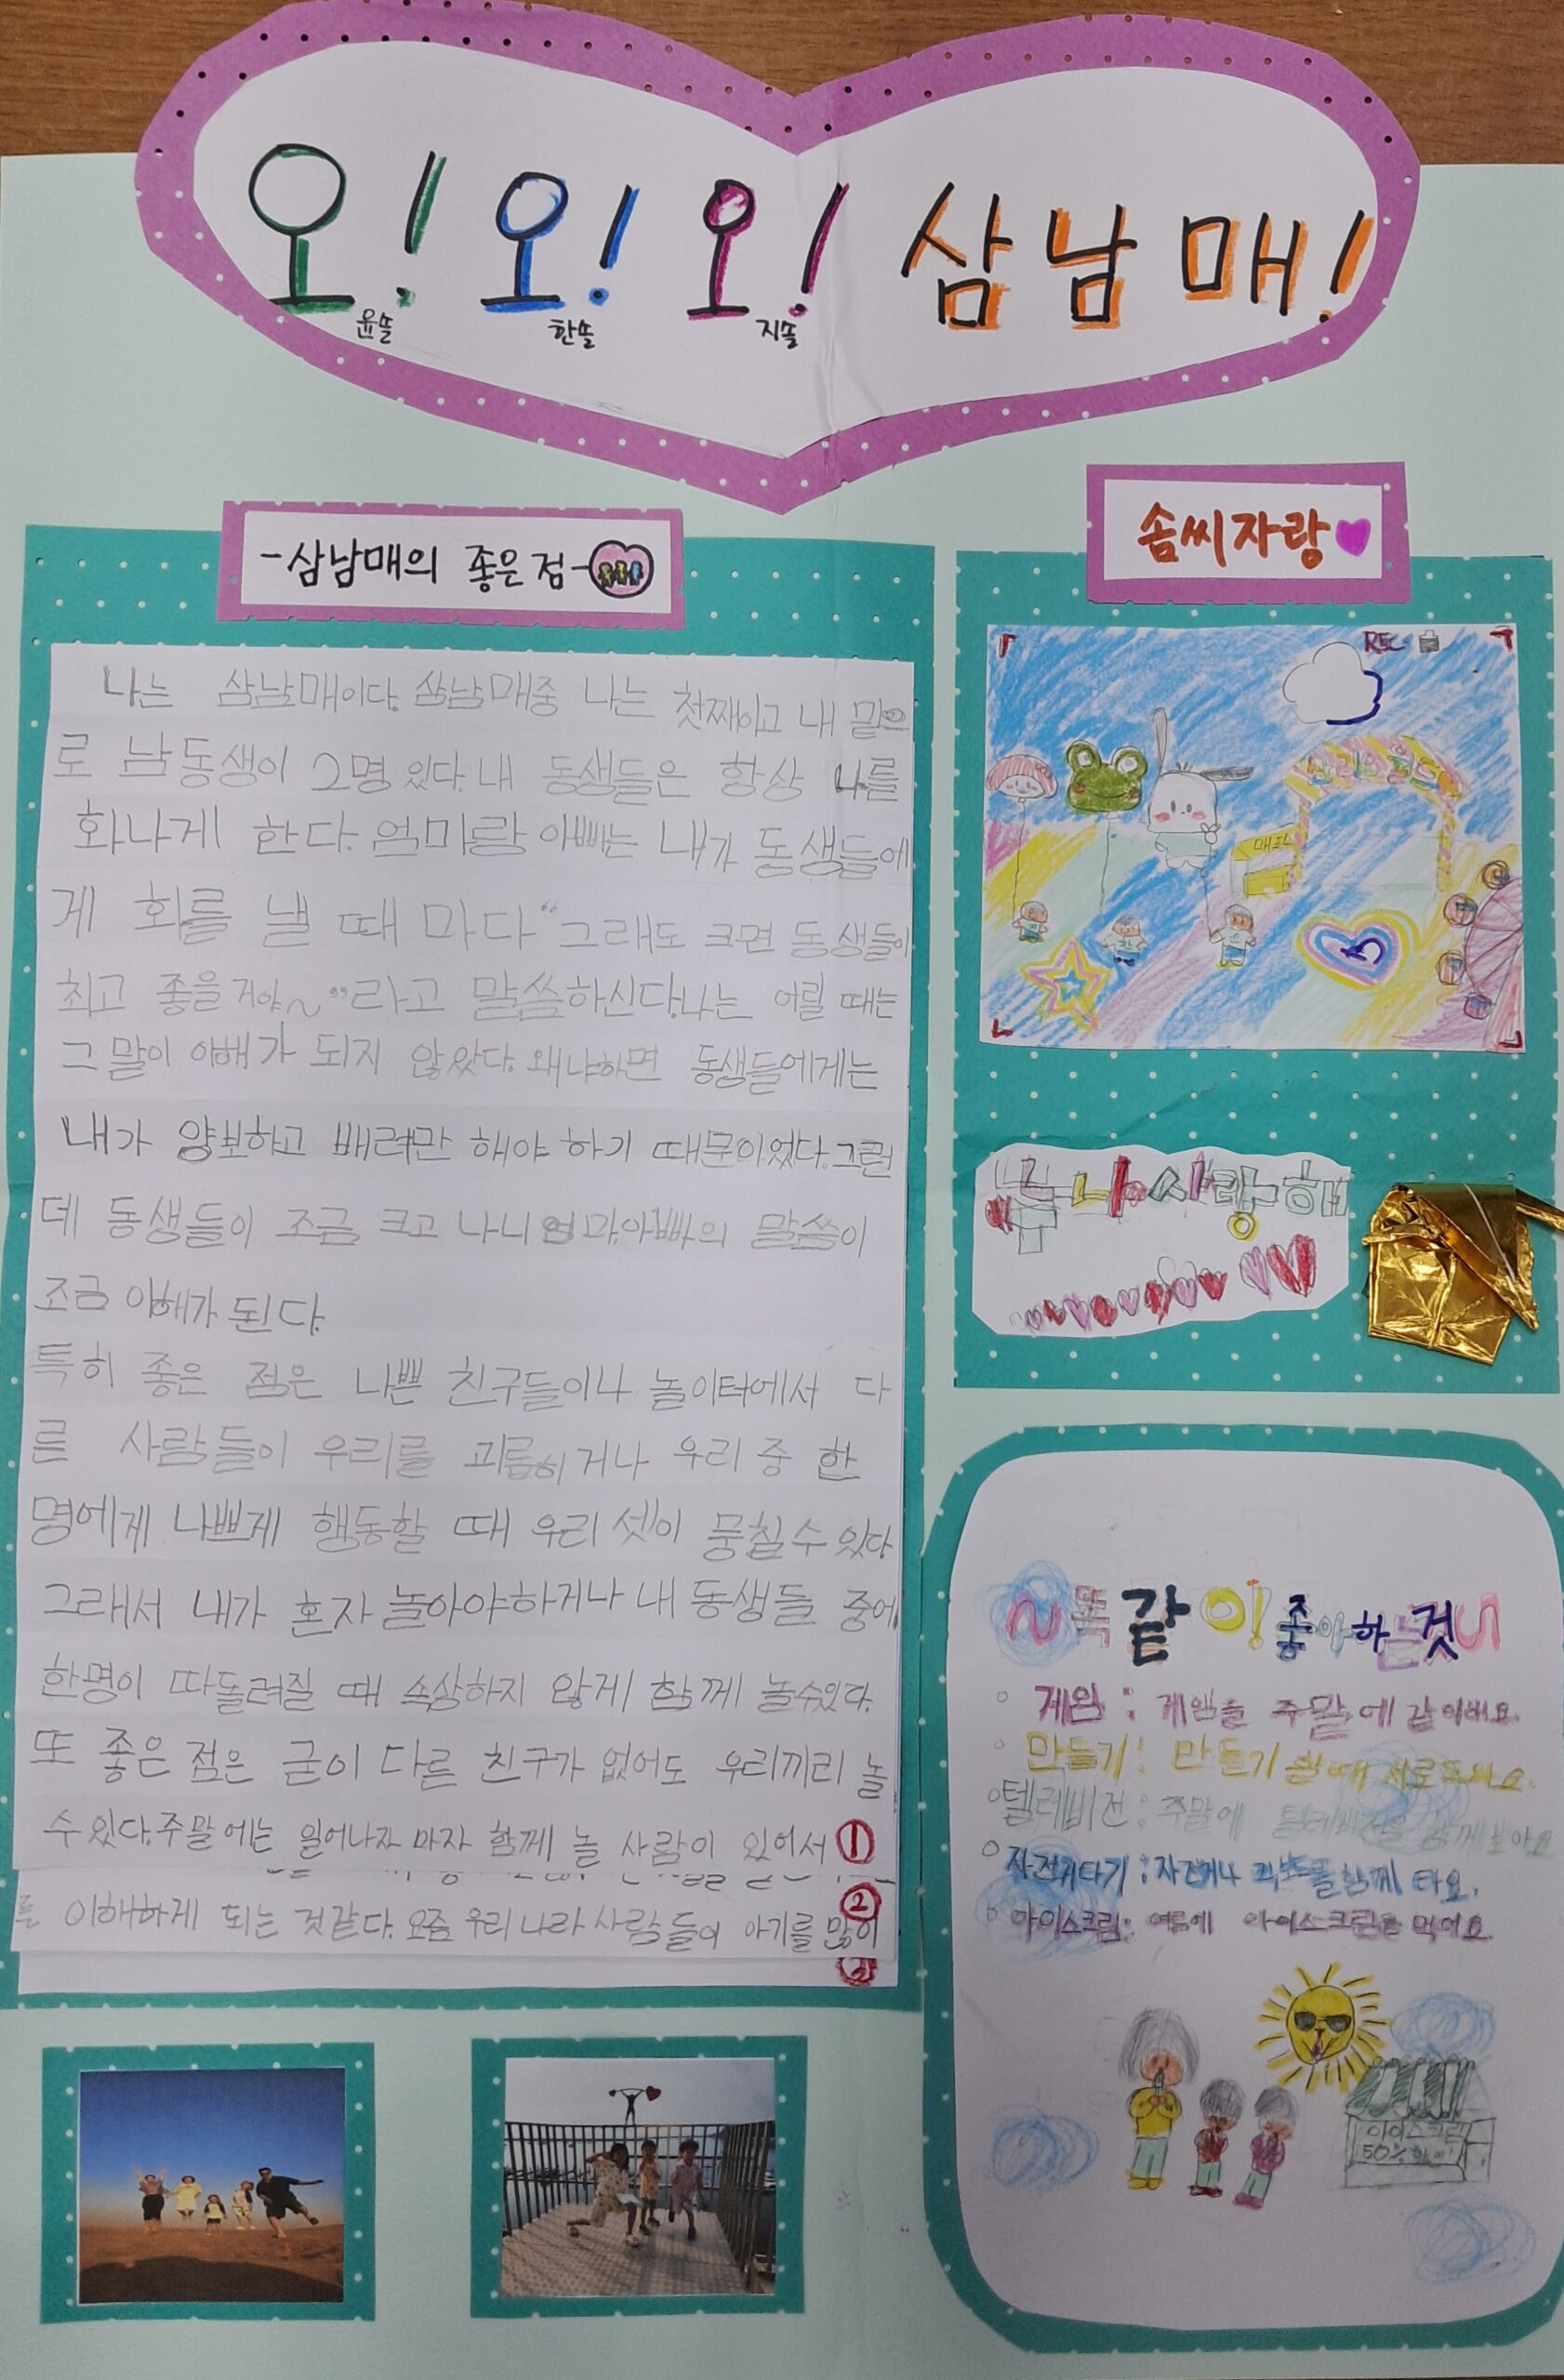 오! 오! 오! 삼남매!
윤쏠 한쏠 지쏠
-삼남매의 좋은점-
나는 삼남매이다. 삼남매중 나는 첫째이고 내 밑으
로 남동생이 2명 있다. 내 동생들은 항상 나를
화나게 한다. 엄마랑 아빠는 내가 동생들에
게 화를 낼 때 마다 "그래도 크면 동생들이
최고 좋을거야~"라고 말씀하신다. 나는 어릴 때는
그 말이 이해가 되지 않았다. 왜냐하면 동생들에게는
내가 양보하고 배려만 해야 하기 때문이었다. 그런
데 동생들이 조금 크고 나니 엄마, 아빠의 말씀이
조금 이해가 된다.
특히 좋은 점은 나쁜 친구들이나 놀이터에서 다
른 사람들이 우리를 괴롭히거나 우리 중 한
명에게 나쁘게 행동할 때 우리 셋이 뭉칠수 있다
그래서 내가 혼자 놀아야하거나 내 동생들 중에
한명이 따돌려질 때 속상하지 않게 함께 놀수있다.
또 좋은 점은 굳이 다른 친구가 없어도 우리끼리 놀
수 있다. 주말에는 일어나자 마자 함께 놀 사람이 있어서 1
를 이해하게 되는 것같다. 요즘 우리 나라 사람들이 아기를 많이 2
3
솜씨자랑
REC
매표
누나사랑해
~똑같이! 좋아하는것~
게임: 게임을 주말에 같이해요.
만들기: 만들기 할때 서로 도와요.
텔레비전: 주말에 텔레비전을 함께보아요
자전거타기: 자전거나 킥보드를 함께 타요.
아이스크림: 여름에 아이스크림을 먹어요.
아이스크림
50% 할인!